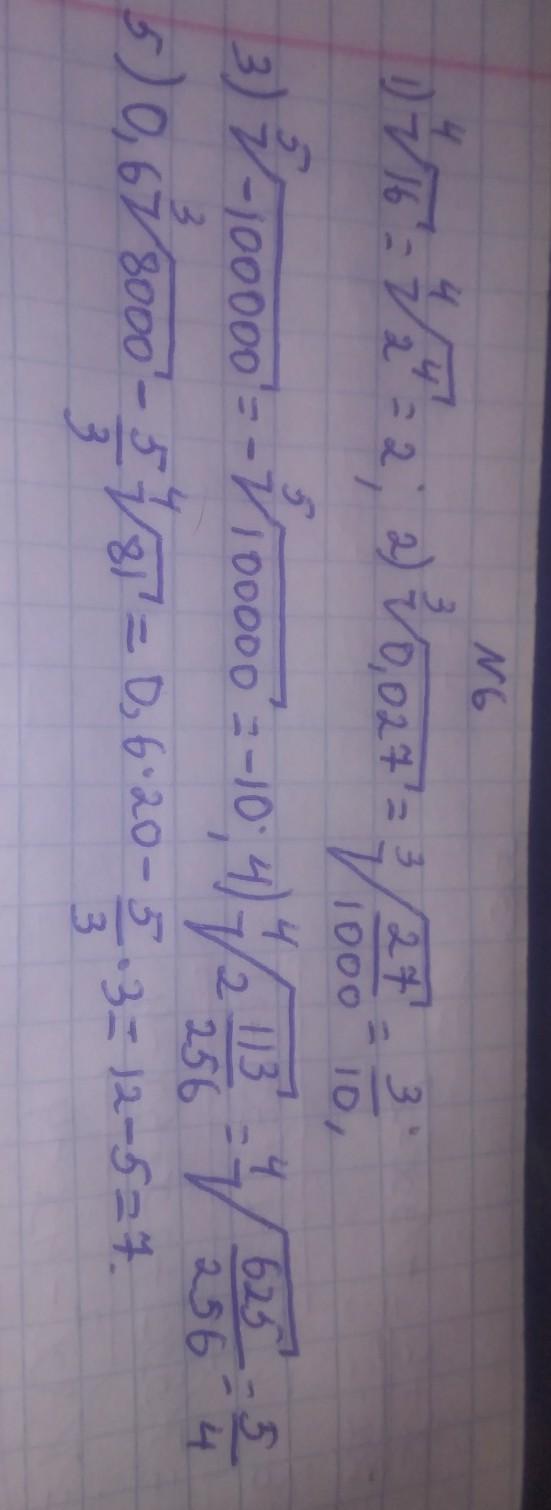 N6
1) ⁴√16 = ⁴√2⁴ = 2; 2) ³√0,027 = ³√27/1000 = 3/10;
3) ⁵√-100000 = -⁵√100000 = -10; 4) ⁴√2 113/256 = ⁴√625/256 = 5/4
5) 0,6 ³√8000 - 5/3 ⁴√81 = 0,6·20 - 5/3·3 = 12-5=7.